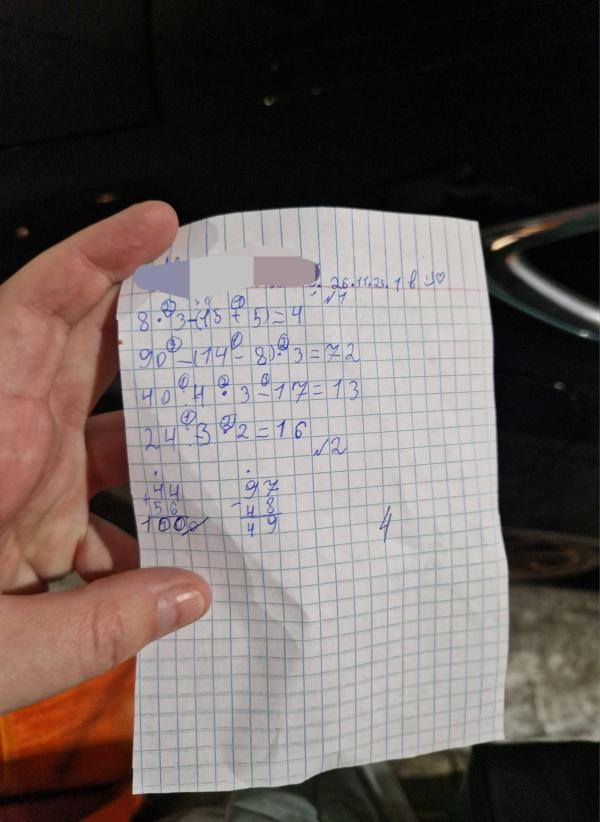 26.11.23. 1 в
№1
8 · 3 - (15 + 5) = 4
90 - (14 - 8) · 3 = 72
40 : 4 · 3 - 17 = 13
24 : 3 · 2 = 16
№2
+44 -97
56 48
100 49
4